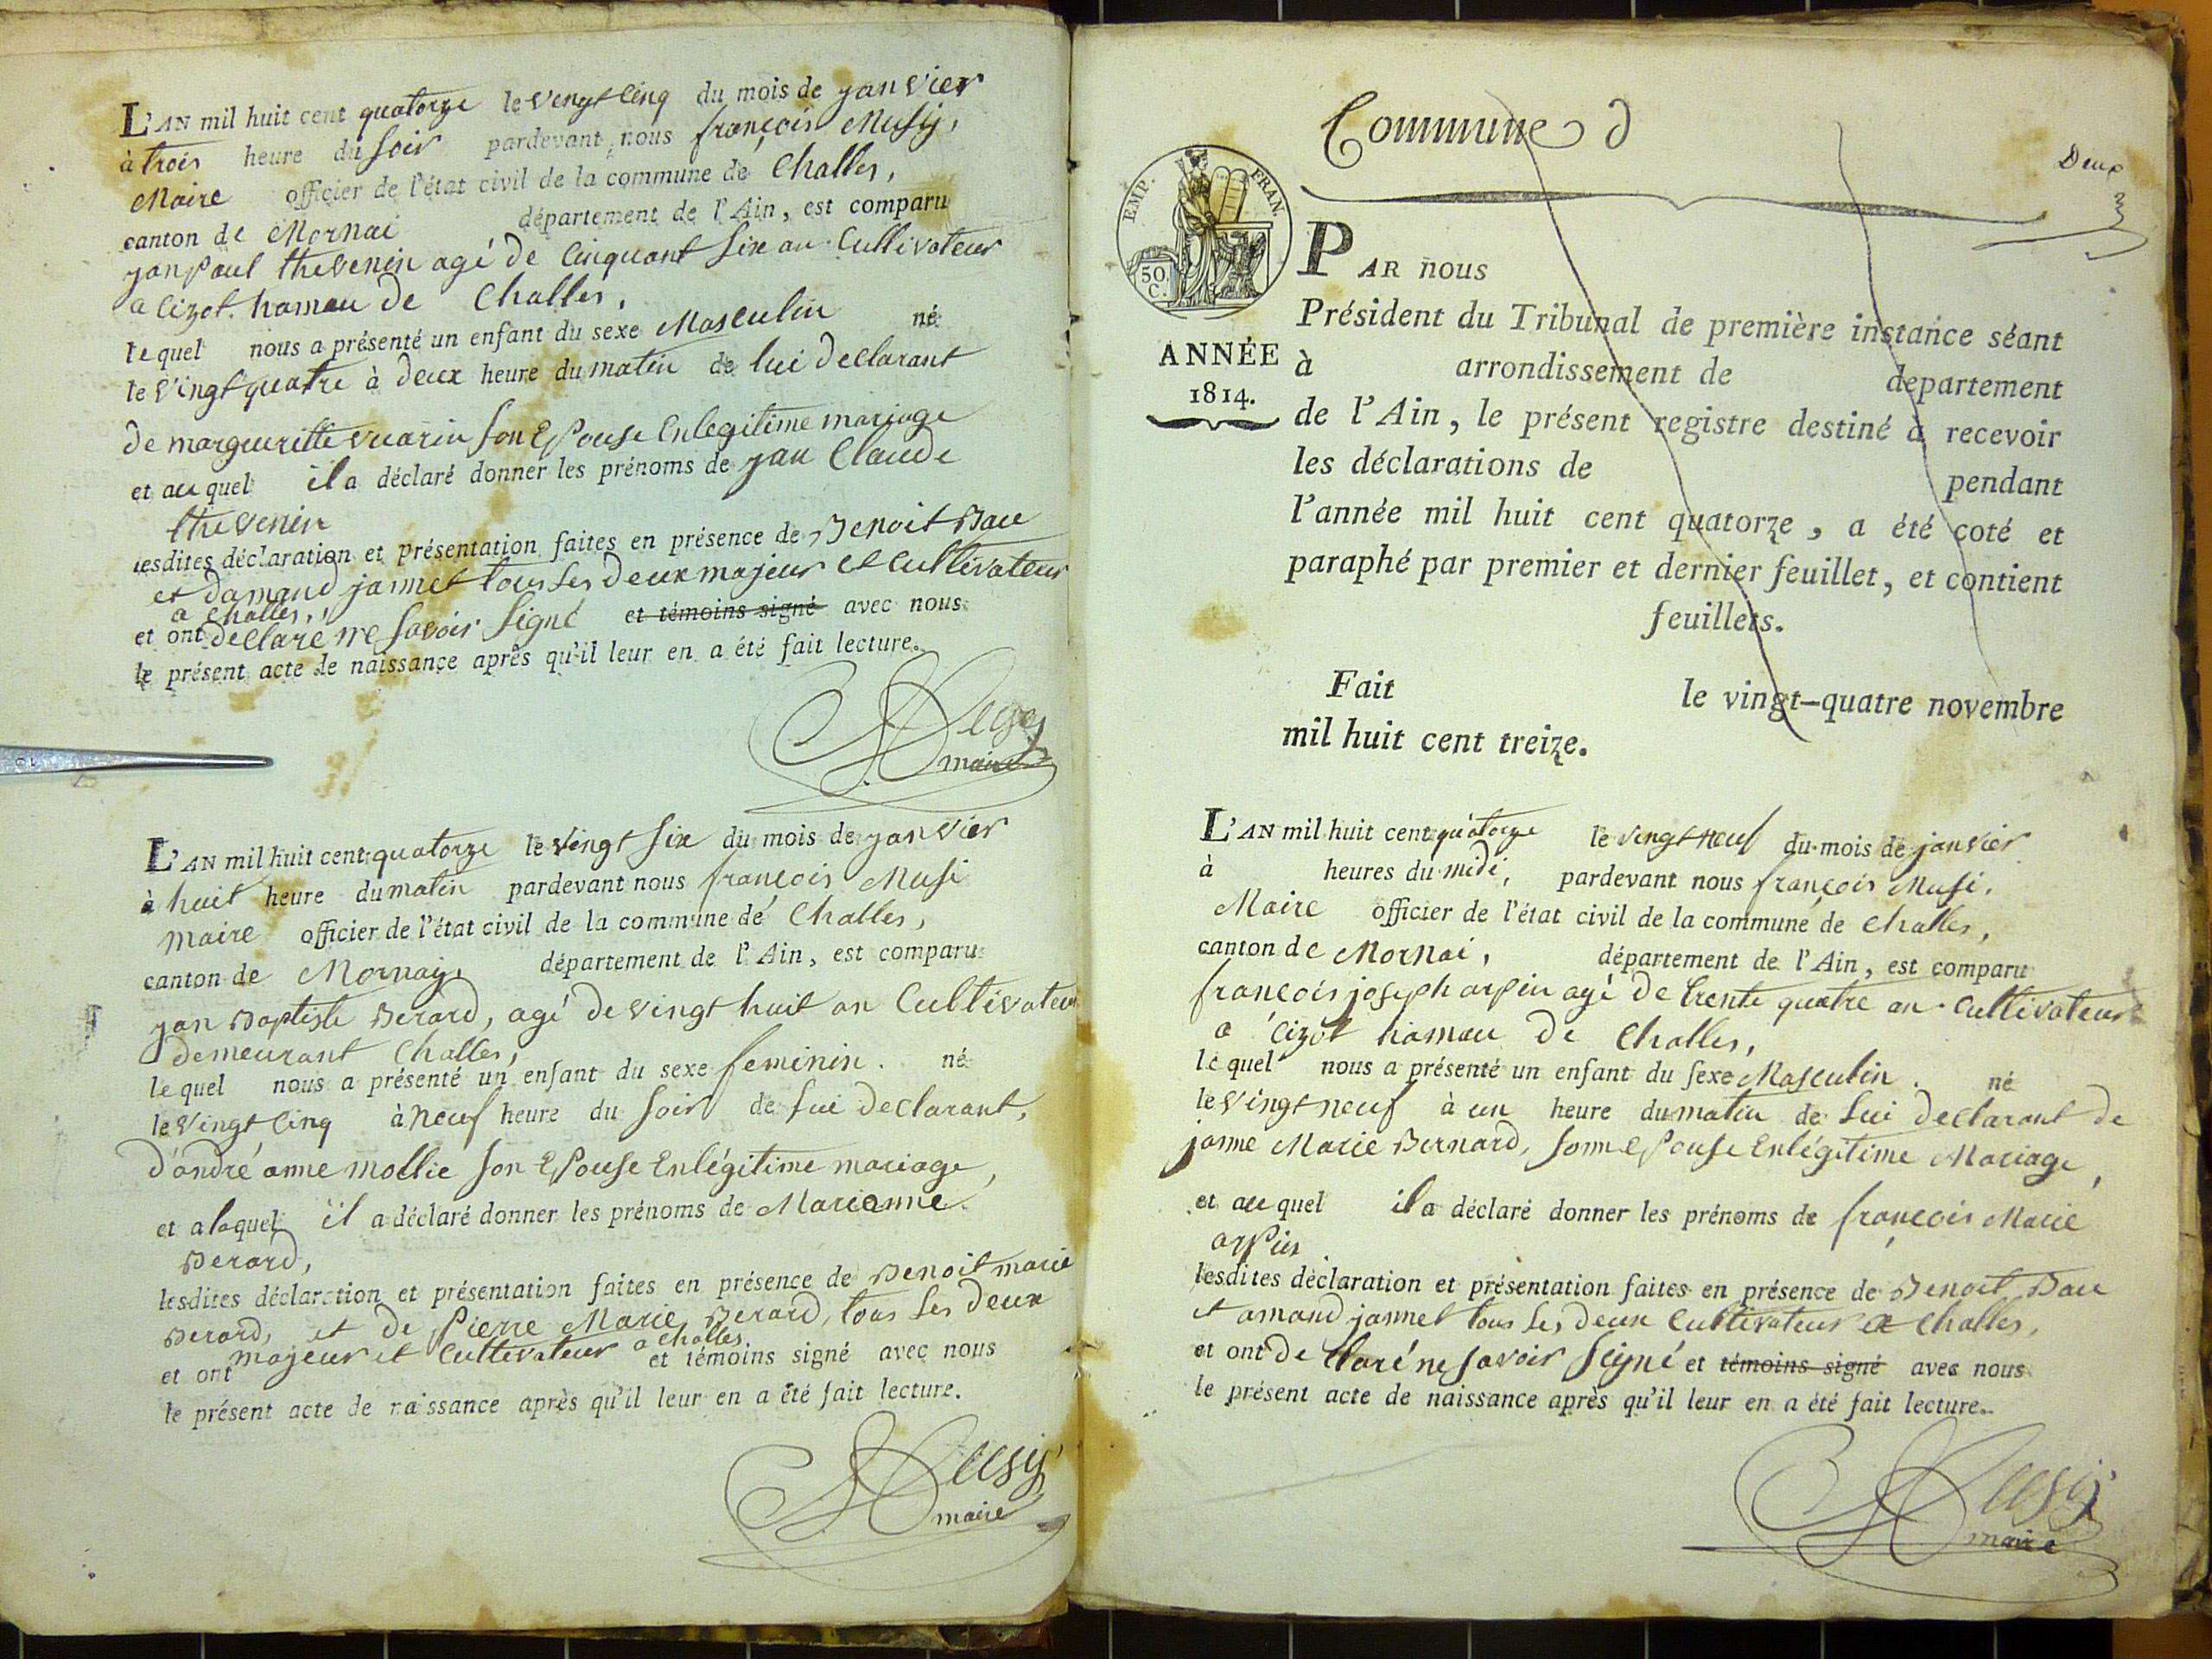 L'AN mil huit cent quatorze le vengt cinq du mois de janvier
à trois heure du soir pardevant nous françois Musy,
Maire officier de l'état civil de la commune de Challes,
canton de Mornai département de l'Ain, est comparu
jan paul thevenin agé de cinquant six an cultivateur
a Cizot hamau de Challes,
lequel nous a présenté un enfant du sexe Masculin né
le vingt quatre à deux heure du matin de lui declarant
de margueritte vuarin son Epouse en legitime mariage
et au quel il a déclaré donner les prénoms de jan Claude
thevenin
lesdites déclaration et présentation faites en présence de Benoit Bau
et damand jannet tous les deux majeur et cultivateur
a Challes,
et ont declare ne savoir signé et témoins signé avec nous
le présent acte de naissance après qu'il leur en a été fait lecture.
Musy
maire
L'AN mil huit cent quatorze le vingt six du mois de janvier
à huit heure du matin pardevant nous françois Musi
maire officier de l'état civil de la commune de Challes,
canton de Mornay département de l'Ain, est comparu
jan Baptiste Berard, agé de vingt huit an Cultivateur
demeurant Challes,
lequel nous a présenté un enfant du sexe feminin. né
le vingt cinq à neuf heure du soir de lui declarant,
d'andré anne mollie son Epouse en légitime mariage,
et a laquel il a déclaré donner les prénoms de Marianne
Berard,
lesdites déclaration et présentation faites en présence de Benoit marie
Berard, et de Pierre Marie Berard, tous les deux
majeur et cultivateur a challes
et ont et témoins signé avec nous
le présent acte de naissance après qu'il leur en a été fait lecture.
Musy
maire
Commune d
Deux
EMP. FRAN.
50. C.
ANNÉE
1814.
PAR nous
Président du Tribunal de première instance séant
à arrondissement de departement
de l'Ain, le présent registre destiné à recevoir
les déclarations de pendant
l'année mil huit cent quatorze, a été coté et
paraphé par premier et dernier feuillet, et contient
feuillets.
Fait le vingt-quatre novembre
mil huit cent treize.
L'AN mil huit cent quatorze le vengt neuf du mois de janvier
à heures du midi, pardevant nous françois Musi,
Maire officier de l'état civil de la commune de Challes,
canton de Mornai, département de l'Ain, est comparu
françois joseph arpin agé de trente quatre an cultivateur
a Cizot hamau de Challes,
lequel nous a présenté un enfant du sexe Masculin. né
le vingt neuf à un heure du matin de lui declarant de
janne Marie Bernard, sonne Epouse en légitime Mariage,
et au quel il a déclaré donner les prénoms de françois Marie
arpin
lesdites déclaration et présentation faites en présence de Benoit Bau
et amand jannet tous les deux cultivateur a Challes,
et ont declaré ne savoir signé et témoins signé avec nous
le présent acte de naissance après qu'il leur en a été fait lecture.
Musy
maire